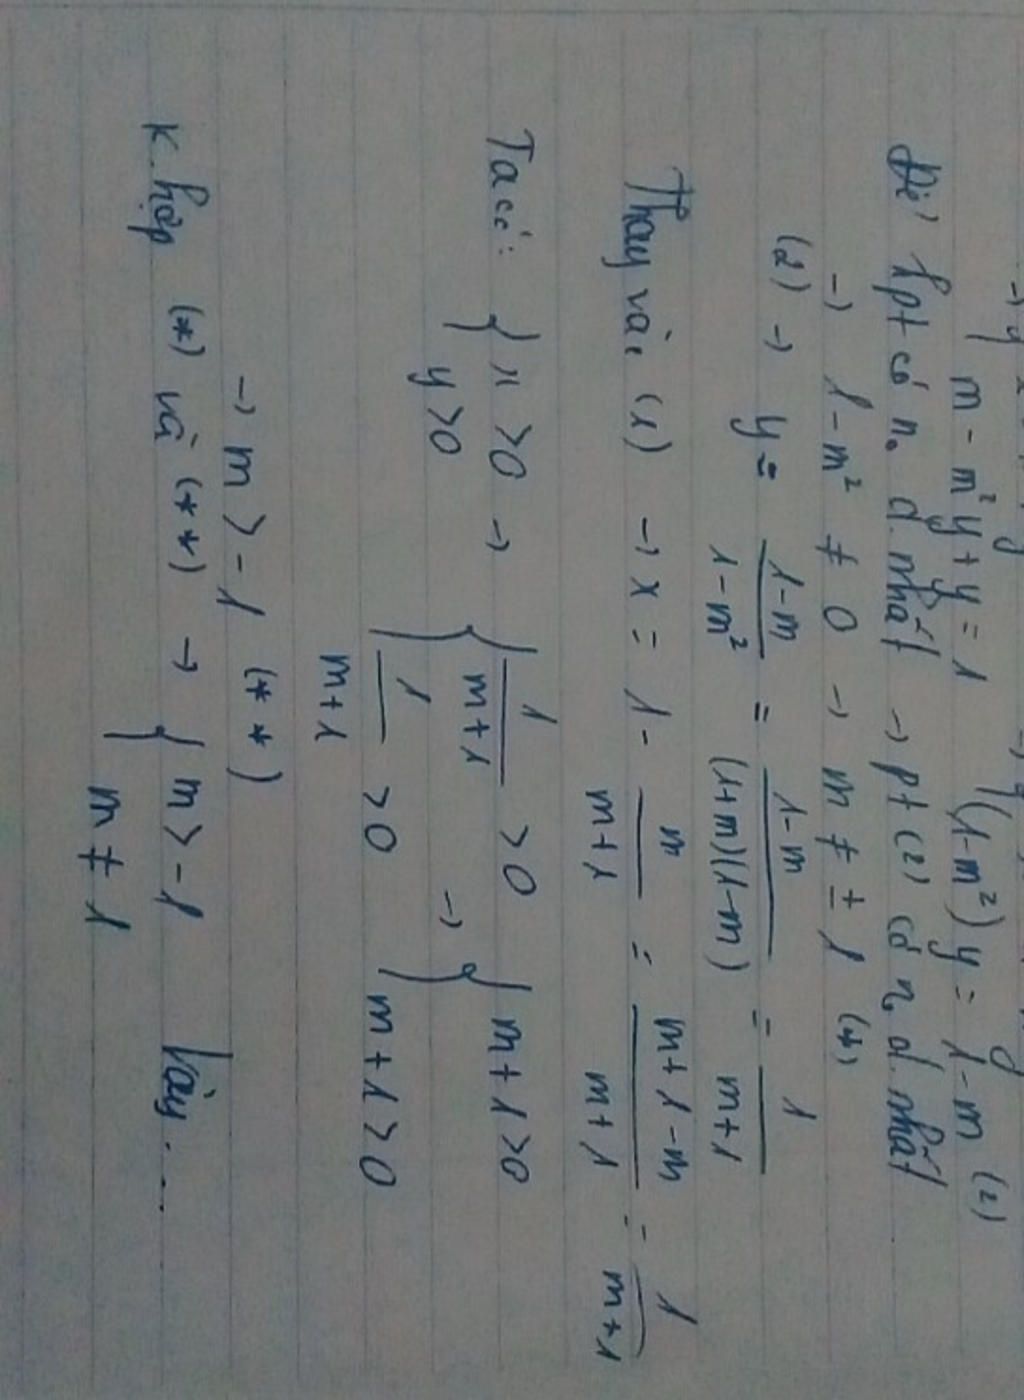 m - m²y + y = 1 → (1-m²)y = 1-m (2)
Để hpt có n₀ d.nhất → pt (2) có n₀ d.nhất
→ 1-m² ≠ 0 → m ≠ ± 1 (*)
(2) → y = (1-m)/(1-m²) = (1-m)/((1+m)(1-m)) = 1/(m+1)
Thay vào (1) → x = 1 - m/(m+1) = (m+1-m)/(m+1) = 1/(m+1)
Ta có: { x > 0 → { 1/(m+1) > 0 → { m+1 > 0
y > 0 1/(m+1) > 0 m+1 > 0
→ m > -1 (**)
K.hợp (*) và (**) → { m > -1 Vậy....
m ≠ 1